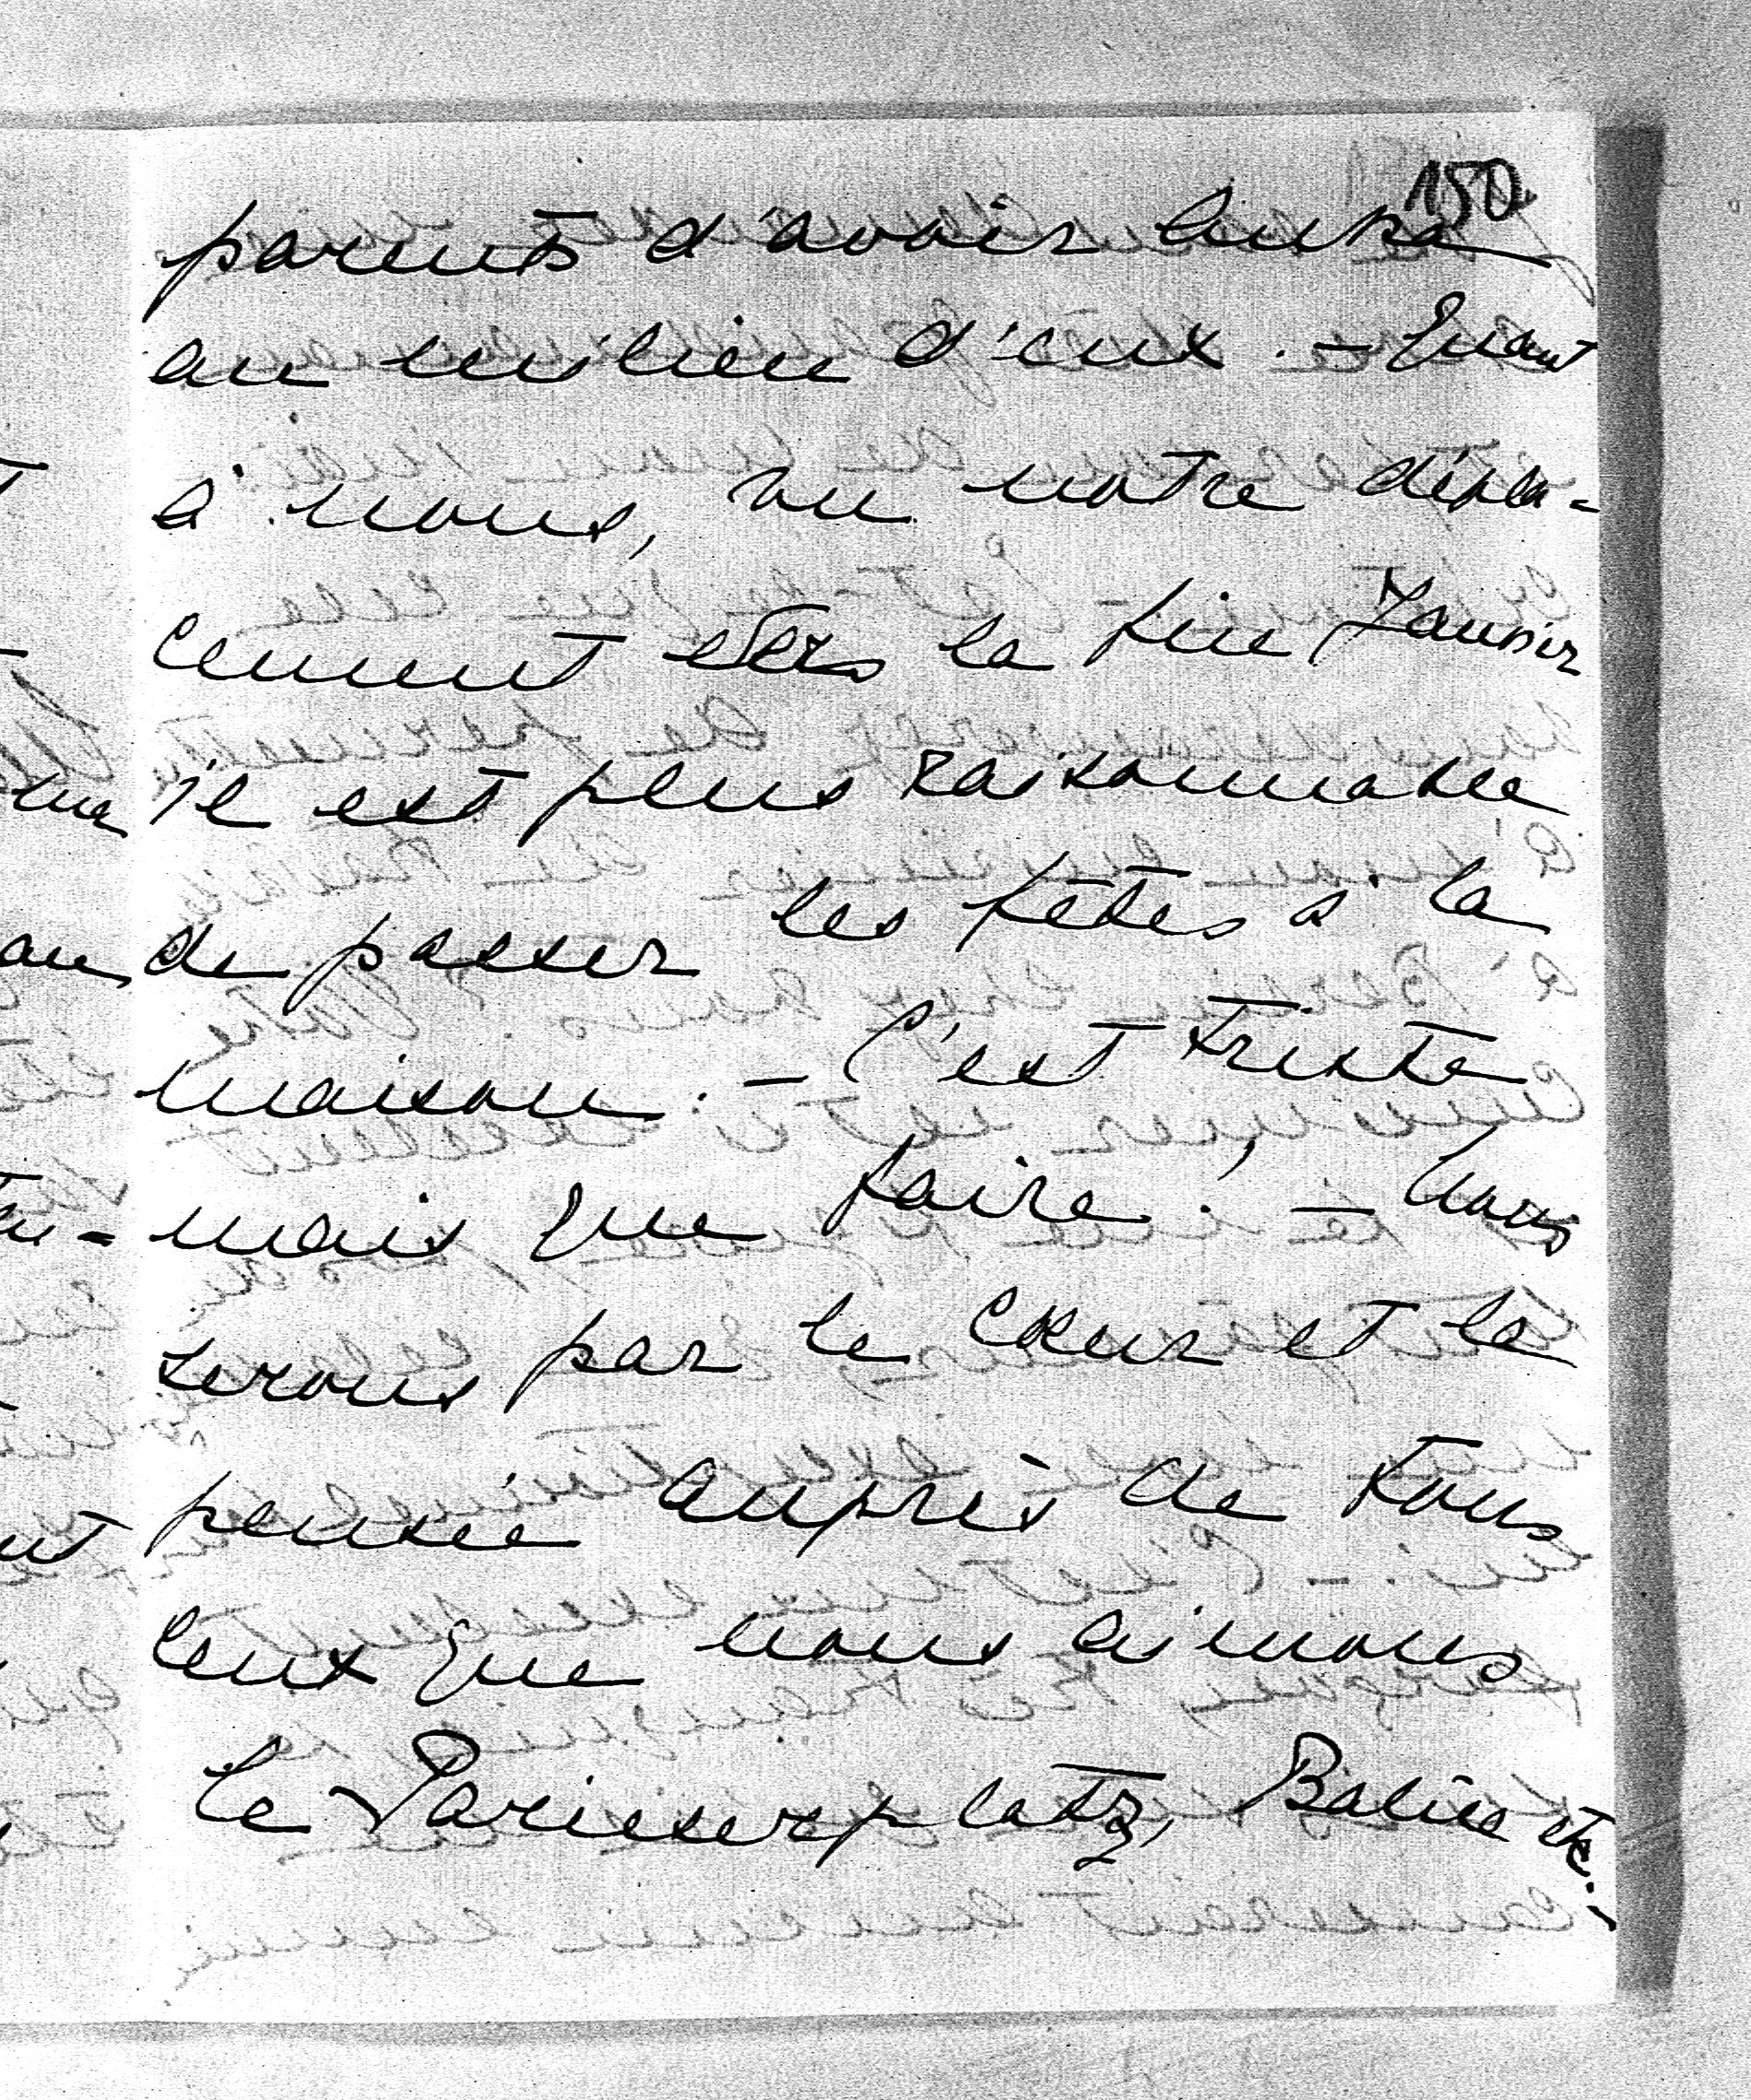 150
parents d'avoir Luka
au milieu d'eux. - Quant
à nous, vu notre dépla-
cement vers la fin Janvier
il est plus raisonnable
de passer les fêtes à la
maison. - C'est triste
mais que faire! - Nous
serons par le cœur et la
pensée auprès de tous
ceux que nous aimons
Le Pariserplatz, Balice etc. -